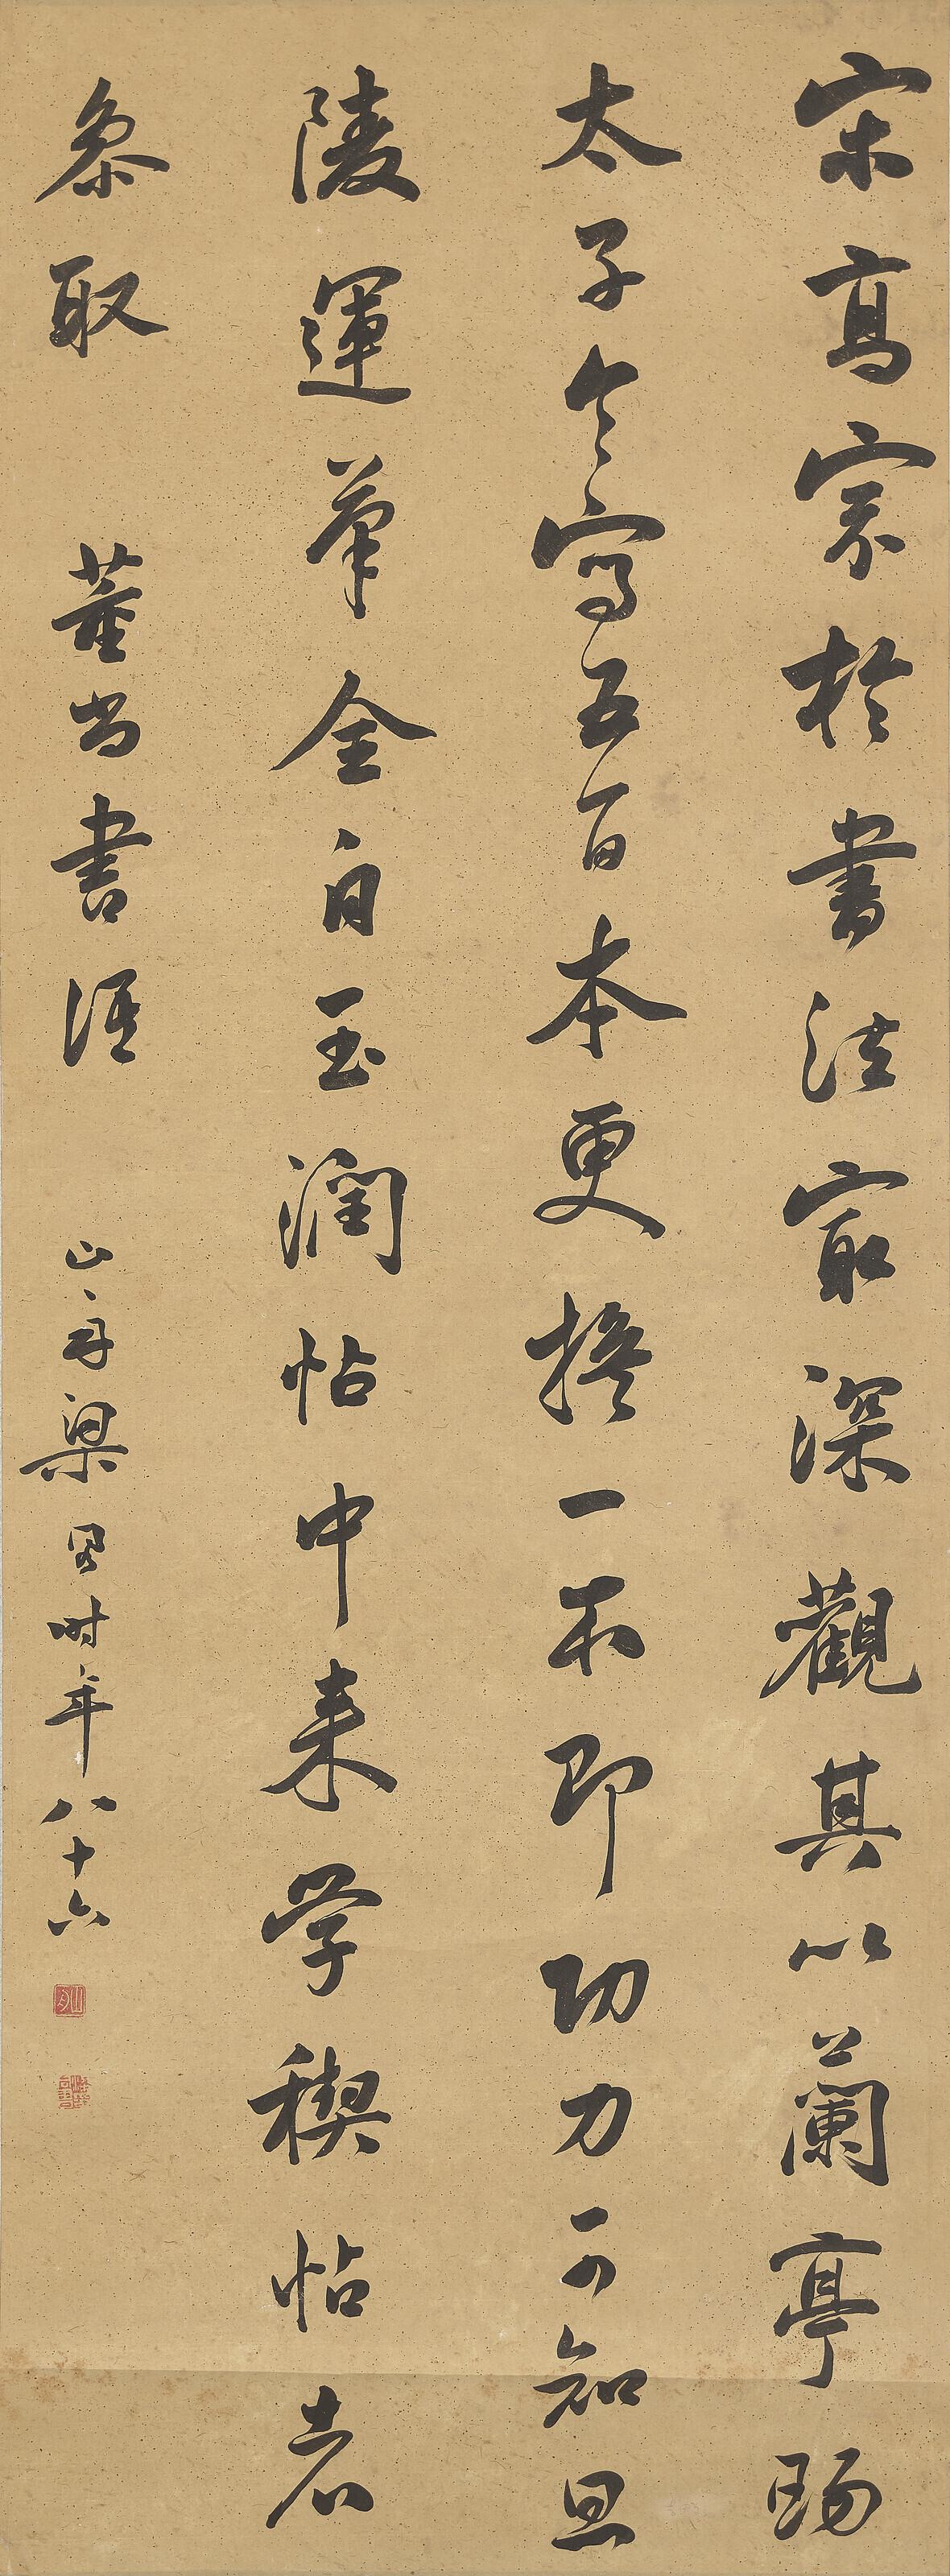 宋高宗於書法㝡深觀其以蘭亭賜
太子令寫五百本更換一本即功力可知思
陵運筆全自玉潤帖中来学禊帖者
參取 董尚書語 山舟梁同書時年八十六